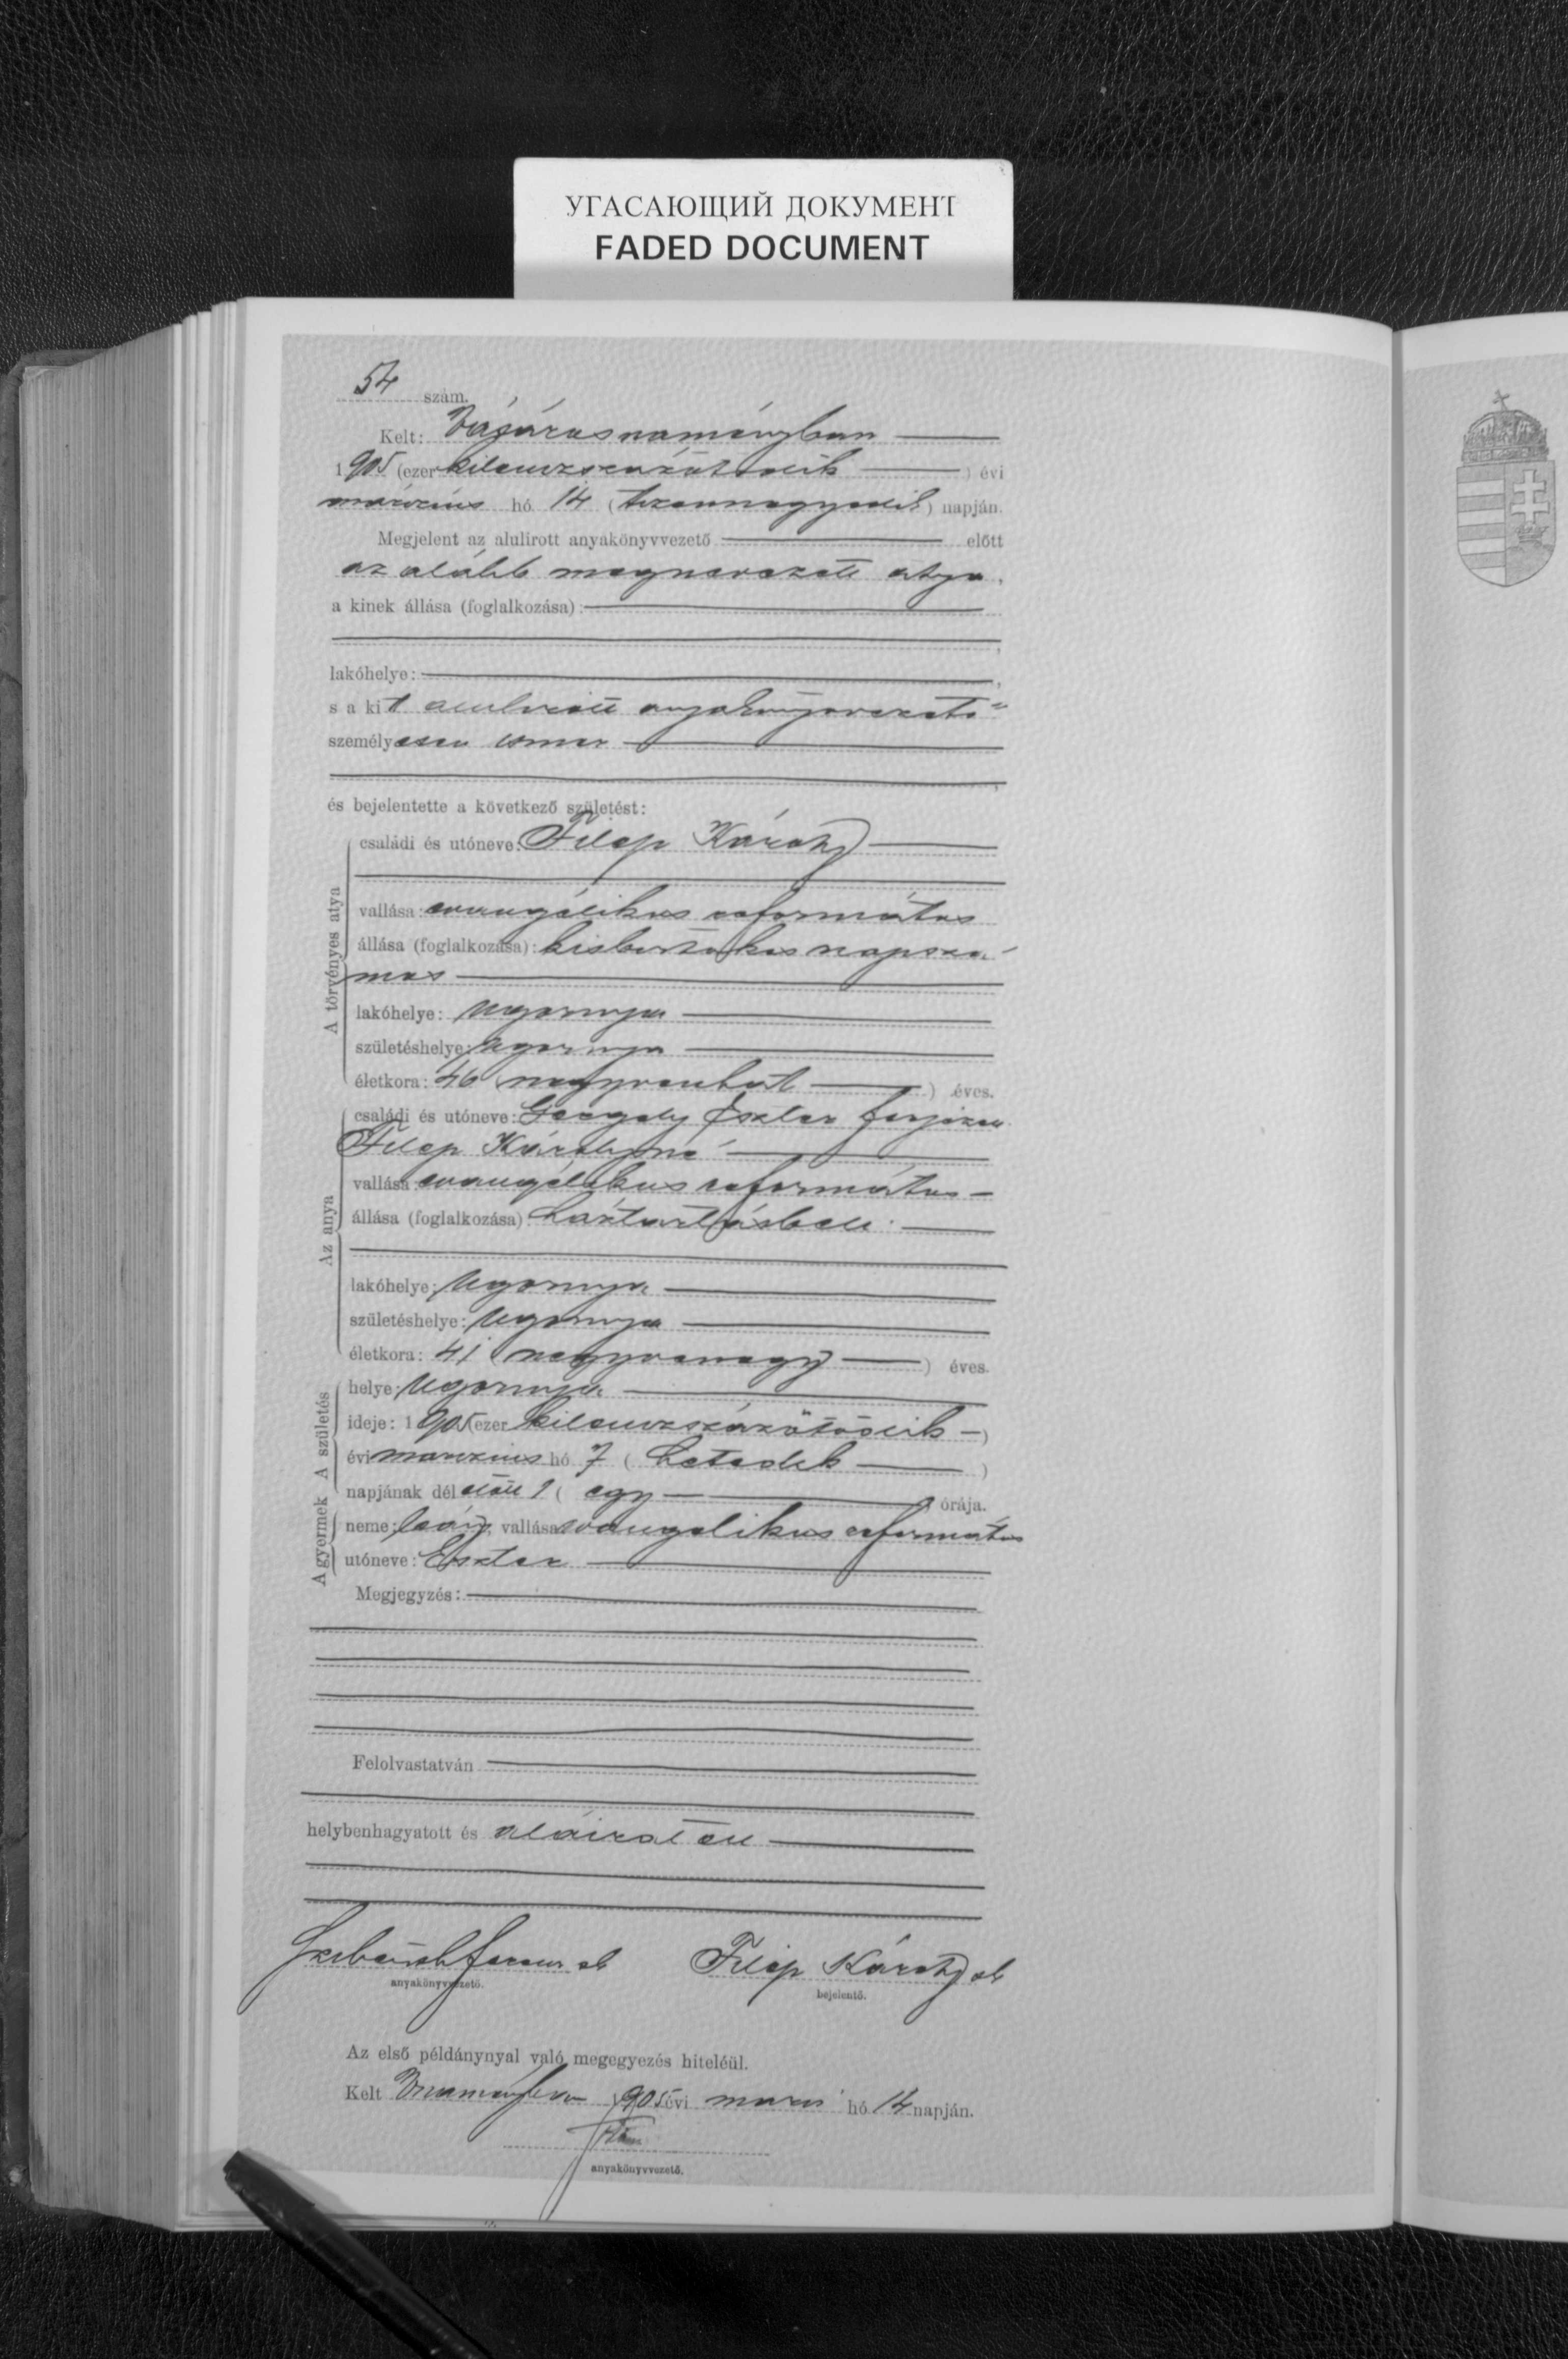 УГАСАЮЩИЙ ДОКУМЕНТ
FADED DOCUMENT
54 szám.
Kelt: Vásárosnaményban
1905 (ezer kilenczszázötödik) évi
márczius hó 14 (tizennegyedik) napján.
Megjelent az alulírott anyakönyvvezető előtt
az alább megnevezett atya,
a kinek állása (foglalkozása):
lakóhelye:
s a kit alulírott anyakönyvvezető
személyesen ismer
és bejelentette a következő születést:
A törvényes atya
családi és utóneve: Filep Károly
vallása: evangélikus református
állása (foglalkozása): kisbirtokos napszá-
mos
lakóhelye: Ugornya
születéshelye: Ugornya
életkora: 46 (negyvenhat) éves.
Az anya
családi és utóneve: Gergely Eszter férjezett
Filep Károlyné
vallása: evangélikus református
állása (foglalkozása): háztartásbeli
lakóhelye: Ugornya
születéshelye: Ugornya
életkora: 41 (negyvenegy) éves.
A születés
helye: Ugornya
ideje: 1905 (ezer kilenczszázötödik)
évi márczius hó 7 (hetedik)
napjának délelőtt 1 (egy) órája.
A gyermek
neme: leány, vallása: evangelikus református
utóneve: Eszter
Megjegyzés:
Felolvastatván
helybenhagyatott és aláiratott
Ferencz sk Filep Károly sk
anyakönyvvezető. bejelentő.
Az első példánynyal való megegyezés hiteléül.
Kelt Vnaményban 1905 évi marcz hó 14 napján.
anyakönyvvezető.